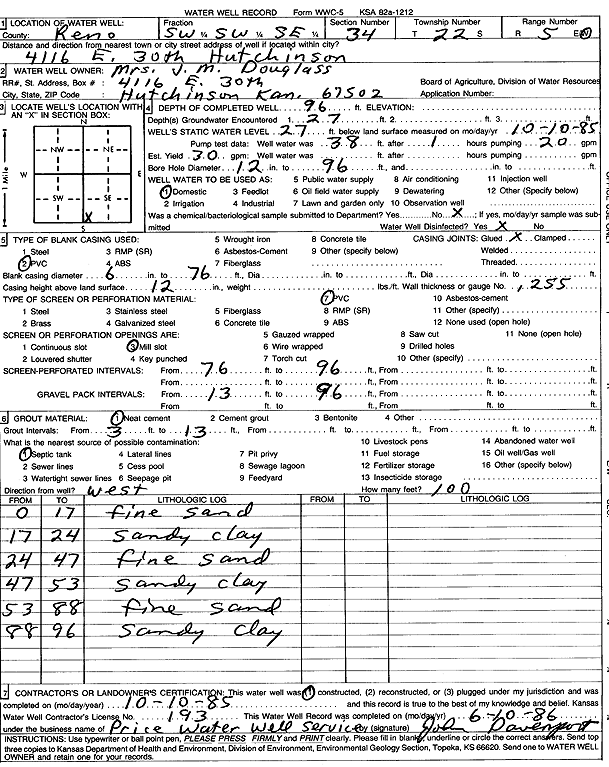 WATER WELL RECORD Form WWC-5 KSA 82a-1212
1 LOCATION OF WATER WELL: Fraction Section Number Township Number Range Number
County: Reno SW ¼ SW ¼ SE ¼ 34 T 22 S R 5 E/W
Distance and direction from nearest town or city street address of well if located within city?
4116 E. 30th Hutchinson
2 WATER WELL OWNER: Mrs. J. M. Douglass
RR#, St. Address, Box # : 4116 E. 30th Board of Agriculture, Division of Water Resources
City, State, ZIP Code : Hutchinson Kan. 67502 Application Number:
3 LOCATE WELL'S LOCATION WITH AN "X" IN SECTION BOX:
N
NW NE
W E
SW SE
X
S
1 Mile
4 DEPTH OF COMPLETED WELL 96 ft. ELEVATION:
Depth(s) Groundwater Encountered 1. 27 ft. 2. ft. 3. ft.
WELL'S STATIC WATER LEVEL 27 ft. below land surface measured on mo/day/yr 10-10-85
Pump test data: Well water was 38 ft. after 1 hours pumping 20 gpm
Est. Yield 30 gpm: Well water was ft. after hours pumping gpm
Bore Hole Diameter 12 in. to 96 ft., and in. to ft.
WELL WATER TO BE USED AS: 5 Public water supply 8 Air conditioning 11 Injection well
1 Domestic 3 Feedlot 6 Oil field water supply 9 Dewatering 12 Other (Specify below)
2 Irrigation 4 Industrial 7 Lawn and garden only 10 Observation well
Was a chemical/bacteriological sample submitted to Department? Yes No X ; If yes, mo/day/yr sample was submitted
Water Well Disinfected? Yes X No
5 TYPE OF BLANK CASING USED: 5 Wrought iron 8 Concrete tile CASING JOINTS: Glued X Clamped
1 Steel 3 RMP (SR) 6 Asbestos-Cement 9 Other (specify below) Welded
2 PVC 4 ABS 7 Fiberglass Threaded
Blank casing diameter 6 in. to 76 ft., Dia in. to ft., Dia in. to ft.
Casing height above land surface 12 in., weight lbs./ft. Wall thickness or gauge No. .255
TYPE OF SCREEN OR PERFORATION MATERIAL: 7 PVC 10 Asbestos-cement
1 Steel 3 Stainless steel 5 Fiberglass 8 RMP (SR) 11 Other (specify)
2 Brass 4 Galvanized steel 6 Concrete tile 9 ABS 12 None used (open hole)
SCREEN OR PERFORATION OPENINGS ARE: 5 Gauzed wrapped 8 Saw cut 11 None (open hole)
1 Continuous slot 3 Mill slot 6 Wire wrapped 9 Drilled holes
2 Louvered shutter 4 Key punched 7 Torch cut 10 Other (specify)
SCREEN-PERFORATED INTERVALS: From 76 ft. to 96 ft., From ft. to ft.
From ft. to ft., From ft. to ft.
GRAVEL PACK INTERVALS: From 13 ft. to 96 ft., From ft. to ft.
From ft. to ft., From ft. to ft.
6 GROUT MATERIAL: 1 Neat cement 2 Cement grout 3 Bentonite 4 Other
Grout Intervals: From 3 ft. to 13 ft., From ft. to ft., From ft. to ft.
What is the nearest source of possible contamination: 10 Livestock pens 14 Abandoned water well
1 Septic tank 4 Lateral lines 7 Pit privy 11 Fuel storage 15 Oil well/Gas well
2 Sewer lines 5 Cess pool 8 Sewage lagoon 12 Fertilizer storage 16 Other (specify below)
3 Watertight sewer lines 6 Seepage pit 9 Feedyard 13 Insecticide storage
Direction from well? West How many feet? 100
FROM TO LITHOLOGIC LOG FROM TO LITHOLOGIC LOG
0 17 fine sand
17 24 sandy clay
24 47 fine sand
47 53 sandy clay
53 88 fine sand
88 96 sandy clay
7 CONTRACTOR'S OR LANDOWNER'S CERTIFICATION: This water well was (1) constructed, (2) reconstructed, or (3) plugged under my jurisdiction and was
completed on (mo/day/year) 10-10-85 and this record is true to the best of my knowledge and belief. Kansas
Water Well Contractor's License No. 193 This Water Well Record was completed on (mo/day/yr) 6-10-86
under the business name of Price Water Well Service by (signature) John Davenport
INSTRUCTIONS: Use typewriter or ball point pen, PLEASE PRESS FIRMLY and PRINT clearly. Please fill in blanks, underline or circle the correct answers. Send top
three copies to Kansas Department of Health and Environment, Division of Environment, Environmental Geology Section, Topeka, KS 66620. Send one to WATER WELL
OWNER and retain one for your records.